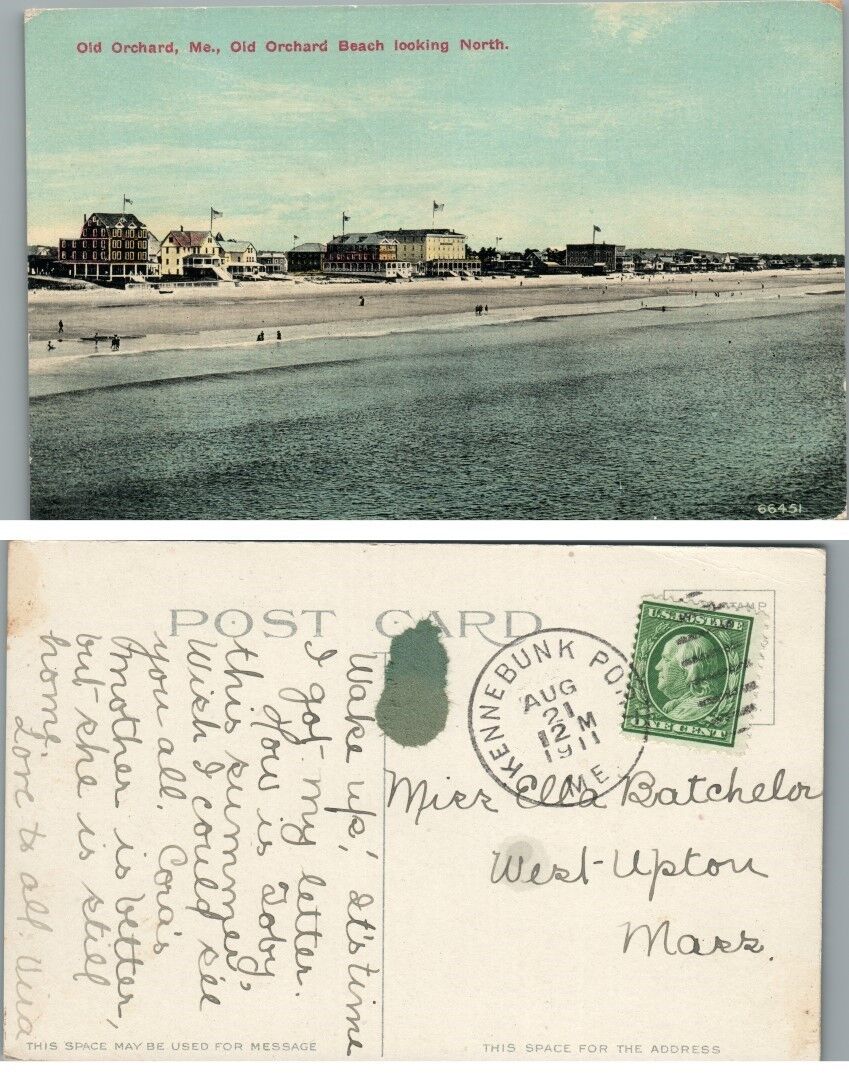 Old Orchard, Me., Old Orchard Beach looking North.
66451
POST CARD
Wake up, It's time
I got my letter.
How is Toby
this summer,
Wish I could see
you all. Cora's
mother is better,
but she is still
home.
Love to all.
THIS SPACE MAY BE USED FOR MESSAGE
KENNEBUNK PO
AUG
21
12 M
1911
ME.
U.S. POSTAGE
ONE CENT
Miss Ella Batchelor
West-Upton
Mass.
THIS SPACE FOR THE ADDRESS